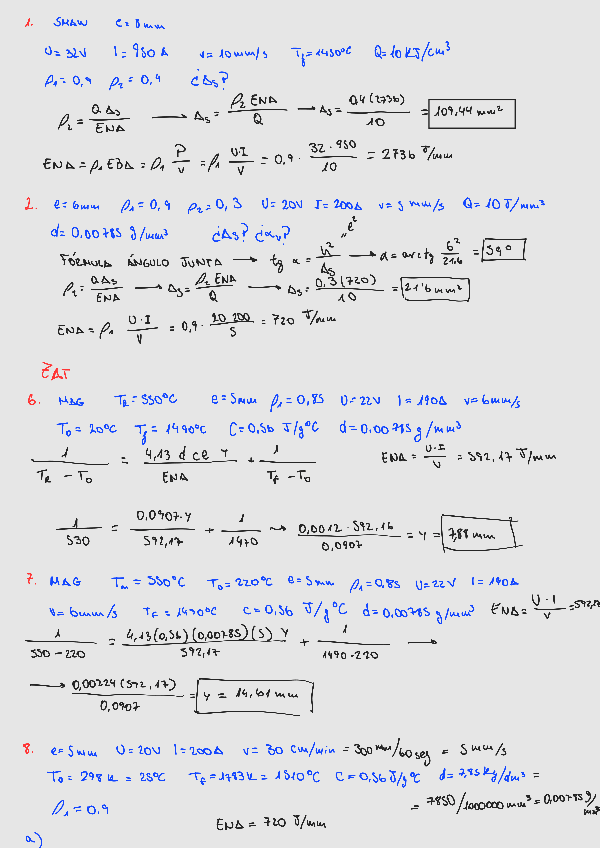 1. SMAW e=8mm
U=32V I=950A v=10mm/s Tf=1450°C Q=10KJ/cm³
ρ1=0,9 ρ2=0,4 ¿Δs?
ρ2 = Q Δs / ENA → Δs = ρ2 ENA / Q → Δs = 0,4 (2736) / 10 = 109,44 mm²
ENA = ρ1 EBA = ρ1 P/v = ρ1 U·I/v = 0,9 · 32·950 / 10 = 2736 J/mm
2. e=6mm ρ1=0,9 ρ2=0,3 U=20V I=200A v=5mm/s Q=10J/mm³
d=0,00785 g/mm³ ¿Δs? ¿αv? "e²
FÓRMULA ÁNGULO JUNTA → tg α = h² / Δs → α = arctg 6² / 21.6 = 59°
ρ2 = Q Δs / ENA → Δs = ρ2 ENA / Q → Δs = 0,3 (720) / 10 = 21'6 mm²
ENA = ρ1 U·I / v = 0,9 · 20·200 / 5 = 720 J/mm
ZAT
6. MAG TR=550°C e=5mm ρ1=0,85 U=22V I=190A v=6mm/s
T0=20°C Tf=1490°C C=0,56 J/g°C d=0,00785 g/mm³
1 / TR - T0 = 4,13 d c e Y / ENA + 1 / TF - T0 ENA = U·I / v = 592,17 J/mm
1 / 530 = 0,0907·Y / 592,17 + 1 / 1470 → 0,0012 · 592,16 / 0,0907 = Y = 7,88 mm
7. MAG Tm=550°C T0=220°C e=5mm ρ1=0,85 U=22V I=190A
v=6mm/s TF=1490°C C=0,56 J/g°C d=0,00785 g/mm³ ENA = U·I / v = 592,17
1 / 550-220 = 4,13(0,56)(0,00785)(5) Y / 592,17 + 1 / 1490-220 →
→ 0,00224 (592,17) / 0,0907 = Y = 14,61 mm
8. e=5mm U=20V I=200A v=30 cm/min = 300mm/60seg = 5mm/s
T0=298K=25°C TF=1783K=1510°C C=0,56J/g°C d=7,85Kg/dm³ =
ρ1=0,9 = 7850/1000000mm³=0,00785g/mm³
ENA = 720 J/mm
a)